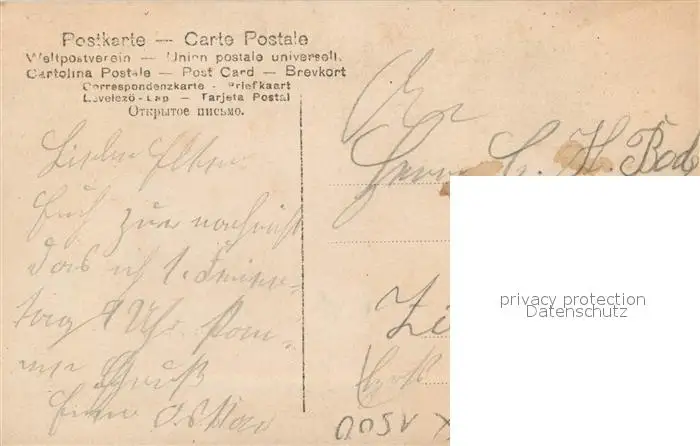 Postkarte — Carte Postale
Weltpostverein — Union postale universell.
Cartolina Postale — Post Card — Brevkort
Correspondenzkarte - Briefkaart
Levelező-Lap — Tarjeta Postal
Открытое письмо.
Liebe Eltern
Euch zur nachricht
das ich 1. Feier-
tag 9 Uhr kom-
me Gruß
Euer
An
Herrn H. Bod
privacy protection
Datenschutz